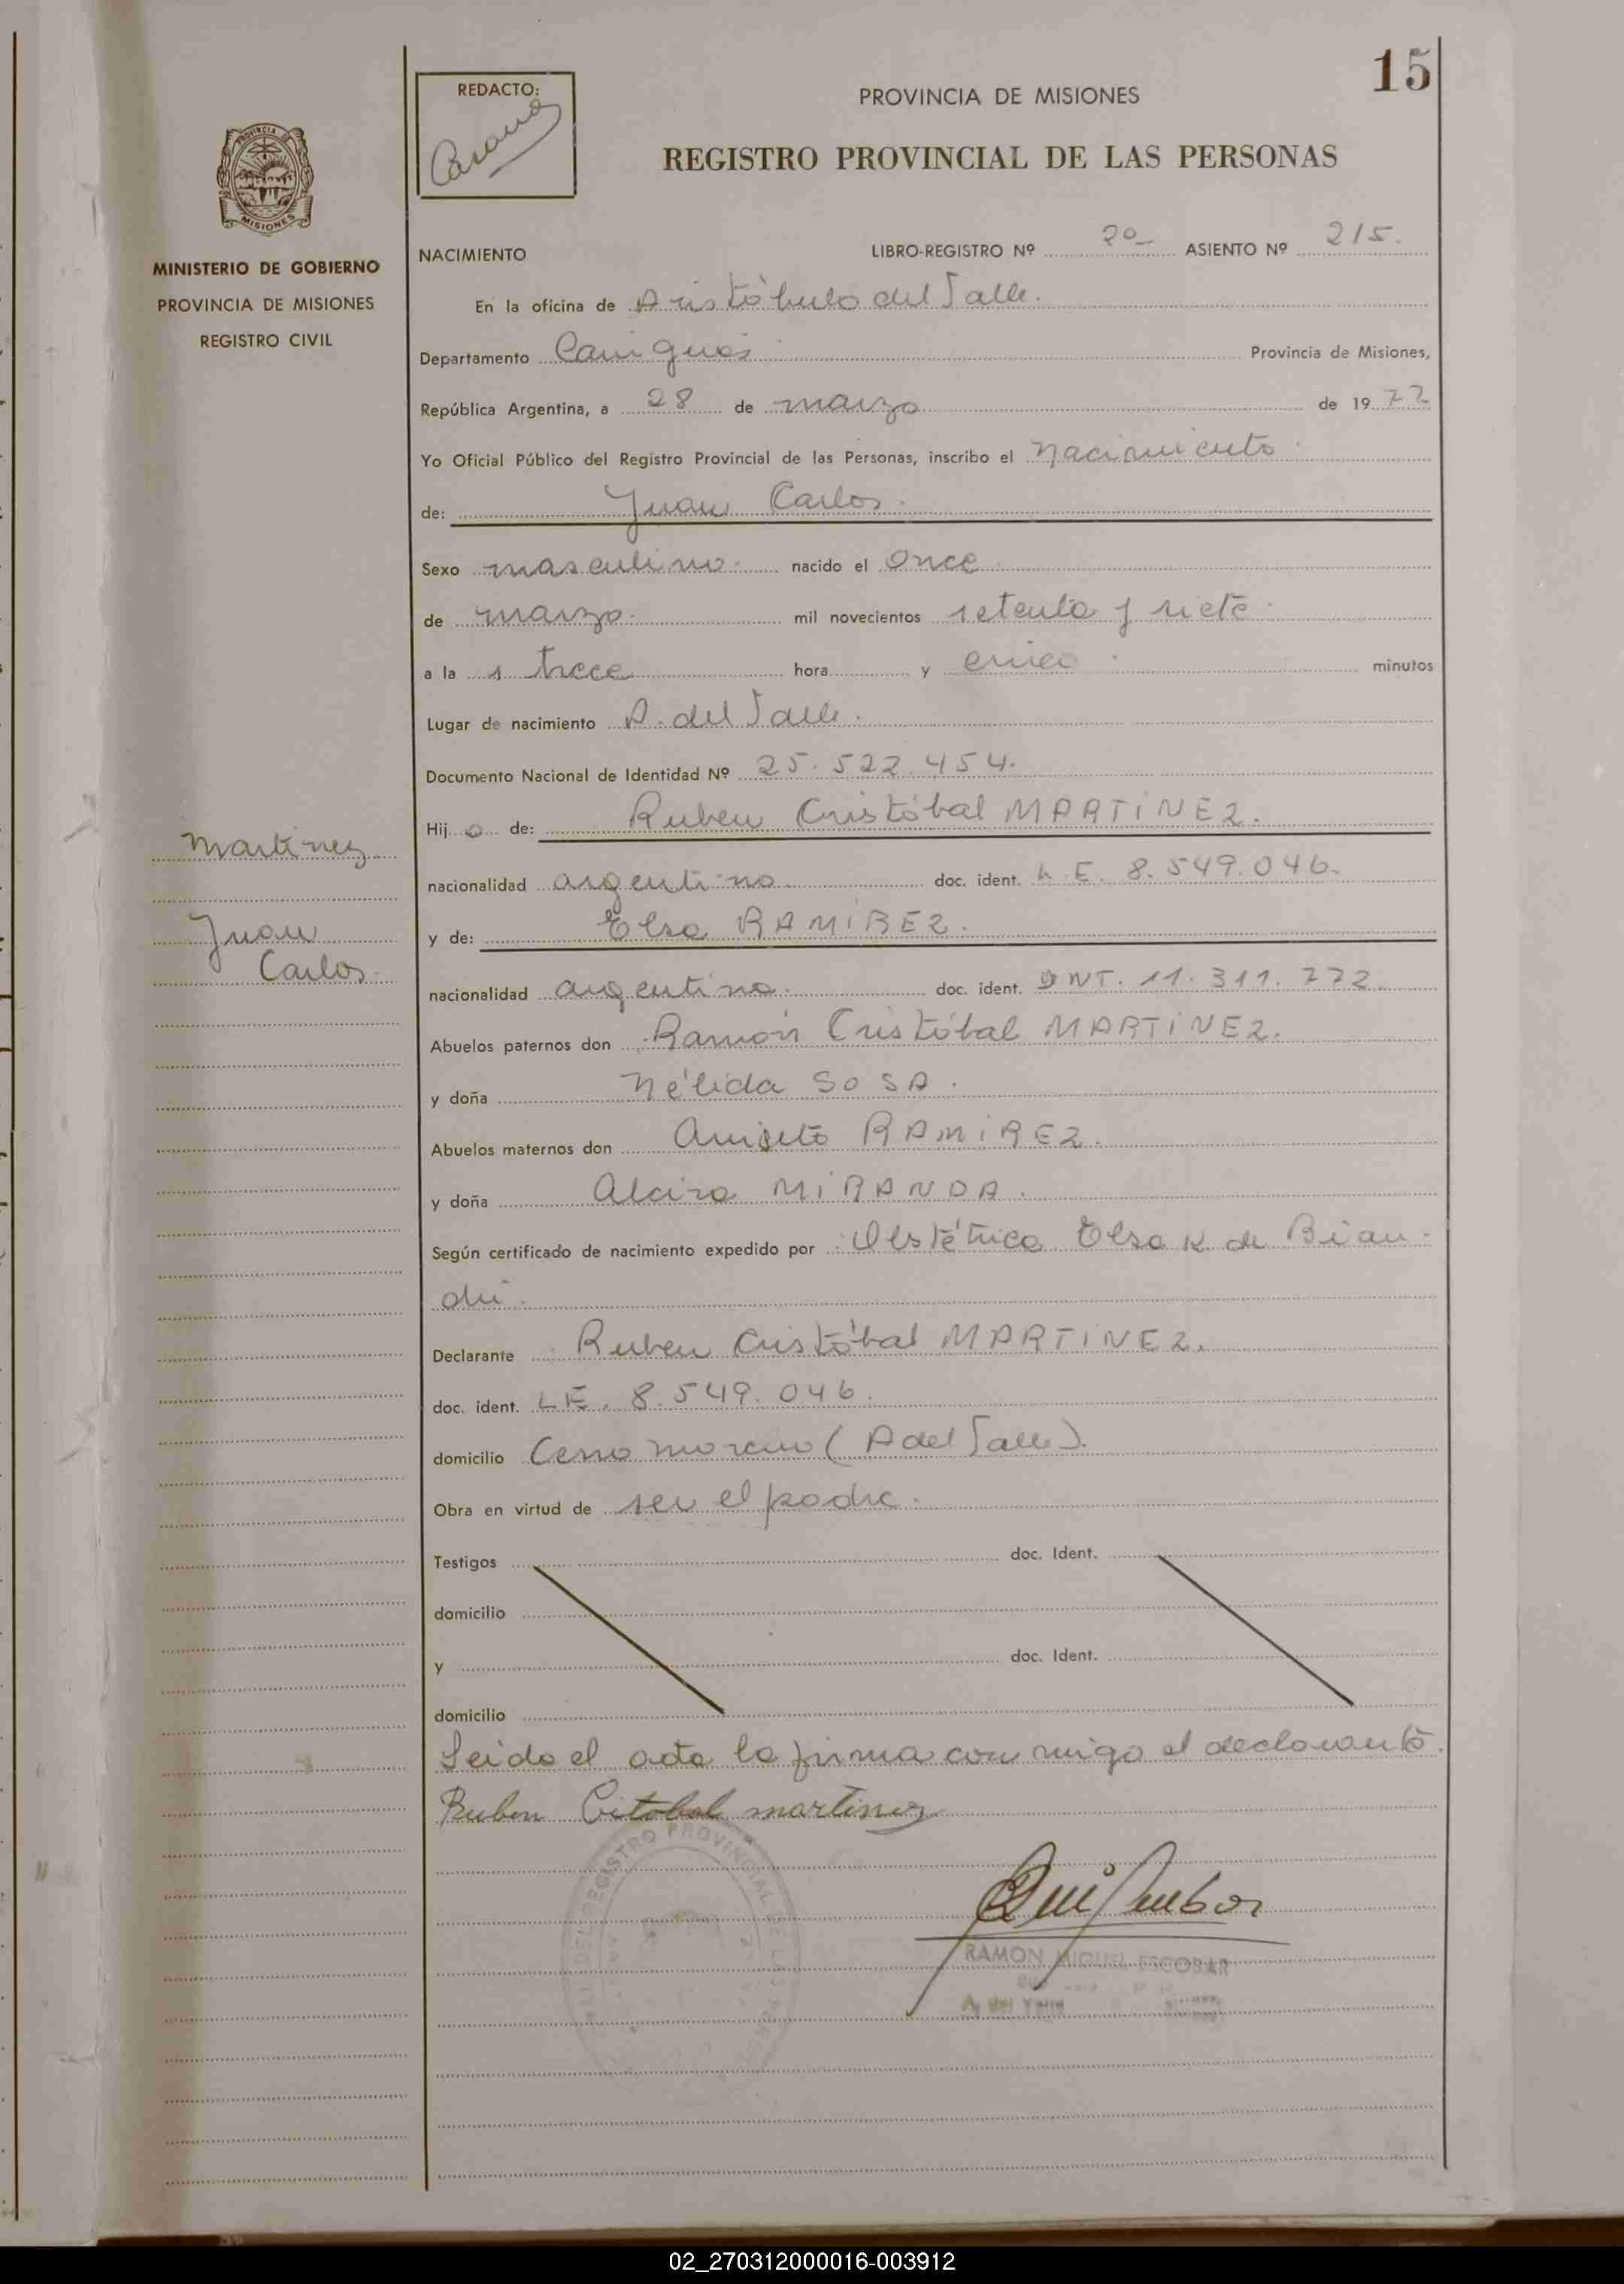 15
REDACTO:
PROVINCIA DE MISIONES
REGISTRO PROVINCIAL DE LAS PERSONAS
PROVINCIA DE
MISIONES
MINISTERIO DE GOBIERNO
PROVINCIA DE MISIONES
REGISTRO CIVIL
NACIMIENTO LIBRO-REGISTRO Nº 2º ASIENTO Nº 215.
En la oficina de Aristóbulo del Valle.
Departamento Cainguás Provincia de Misiones,
República Argentina, a 28 de marzo de 1977
Yo Oficial Público del Registro Provincial de las Personas, inscribo el Nacimiento
de: Juan Carlos.
Sexo masculino. nacido el once
de marzo. mil novecientos setenta y siete.
a la s trece hora y cinco minutos
Lugar de nacimiento A. del Valle.
Documento Nacional de Identidad Nº 25.522.454.
Martinez
Juan
Carlos.
Hij o de: Ruben Cristóbal MARTINEZ.
nacionalidad argentino doc. ident. L.E. 8.549.046.
y de: Elsa RAMÍREZ.
nacionalidad argentina. doc. ident. DNI. 11.311.772.
Abuelos paternos don Ramón Cristóbal MARTINEZ.
y doña Nélida SOSA.
Abuelos maternos don Aniseto RAMIREZ.
y doña Alcira MIRANDA.
Según certificado de nacimiento expedido por Obstétrica Elsa K de Bian-
chi.
Declarante Ruben Cristóbal MARTINEZ.
doc. ident. LE. 8.549.046.
domicilio Cerro moreno (A del Valle).
Obra en virtud de ser el padre.
Testigos doc. Ident.
domicilio
y doc. Ident.
domicilio
Leida el acta la firma con migo el declarante.
Ruben Critobal martinez
REGISTRO PROVINCIAL DE LAS
RAMON MIGUEL ESCOBAR
A. del Valle
02_270312000016-003912